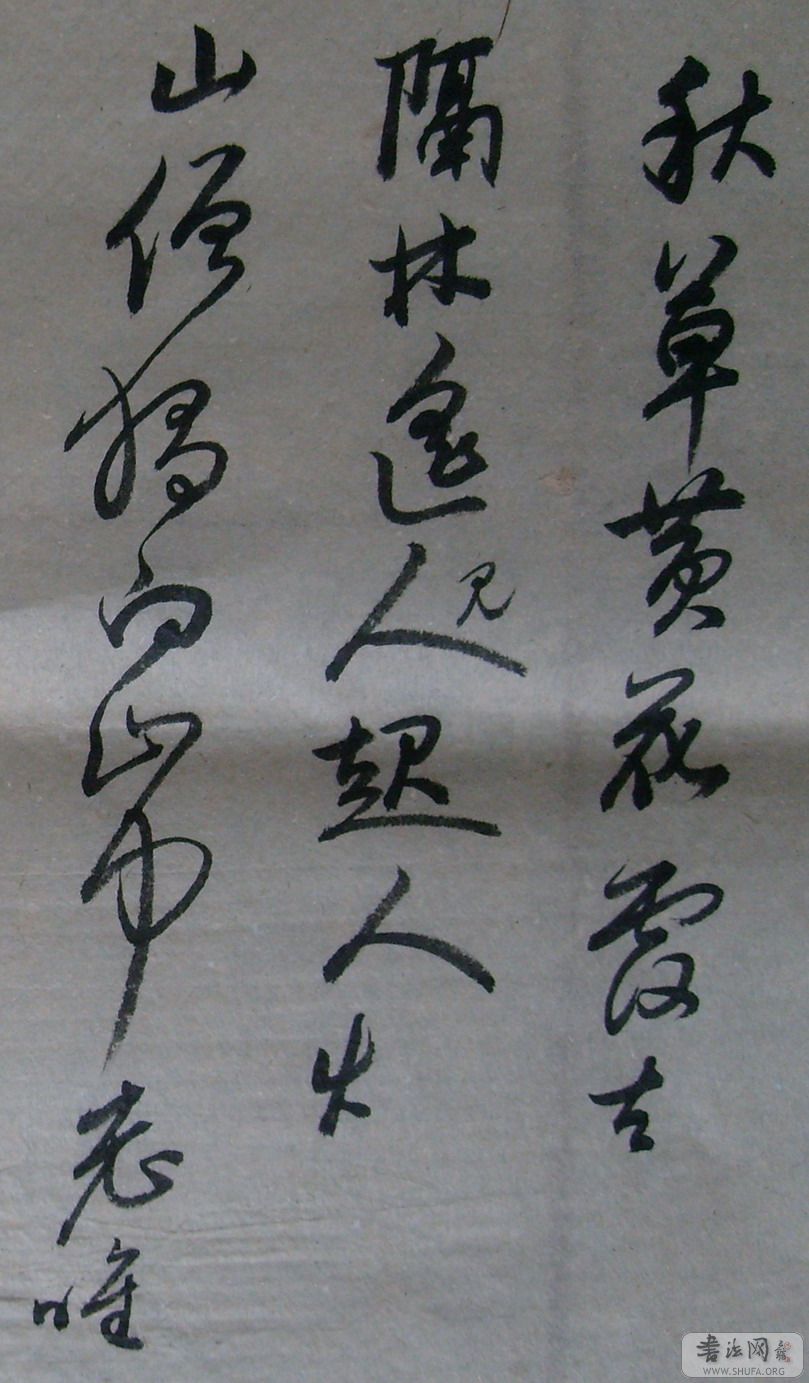 秋草黄花覆古
隔林遥人见起人
山僧獨向山中老唯
書法网
WWW.SHUFA.ORG